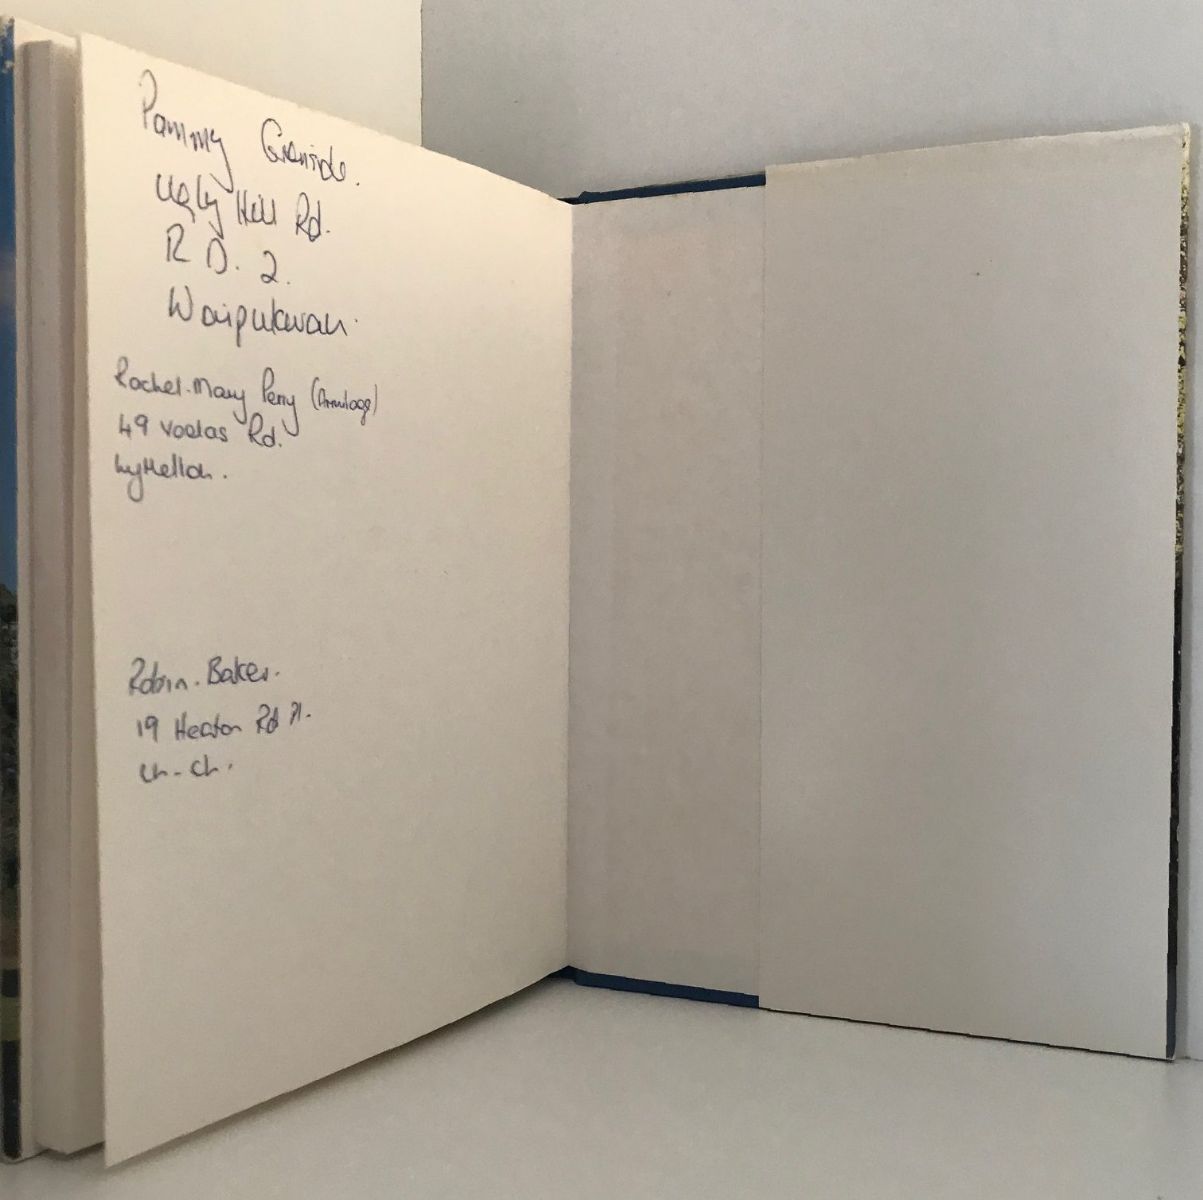 Pammy Grenside.
Ugly Hill Rd.
R D. 2.
Waipukurau.
Rachel-Mary Perry (Armitage)
49 Voelas Rd.
Lyttelton.
Robin. Baker.
19 Heaton Rd
Ch-Ch.